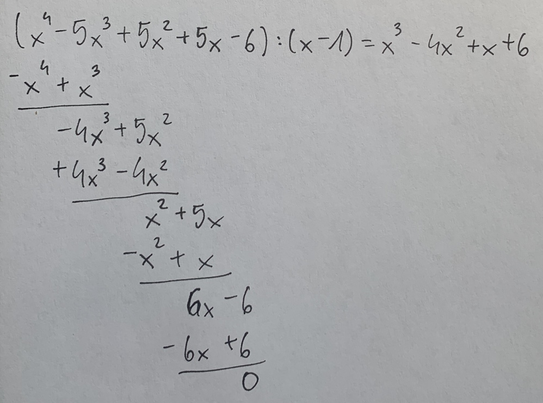 (x⁴ - 5x³ + 5x² + 5x - 6) : (x - 1) = x³ - 4x² + x + 6
-x⁴ + x³
-4x³ + 5x²
+4x³ - 4x²
x² + 5x
-x² + x
6x - 6
-6x + 6
0